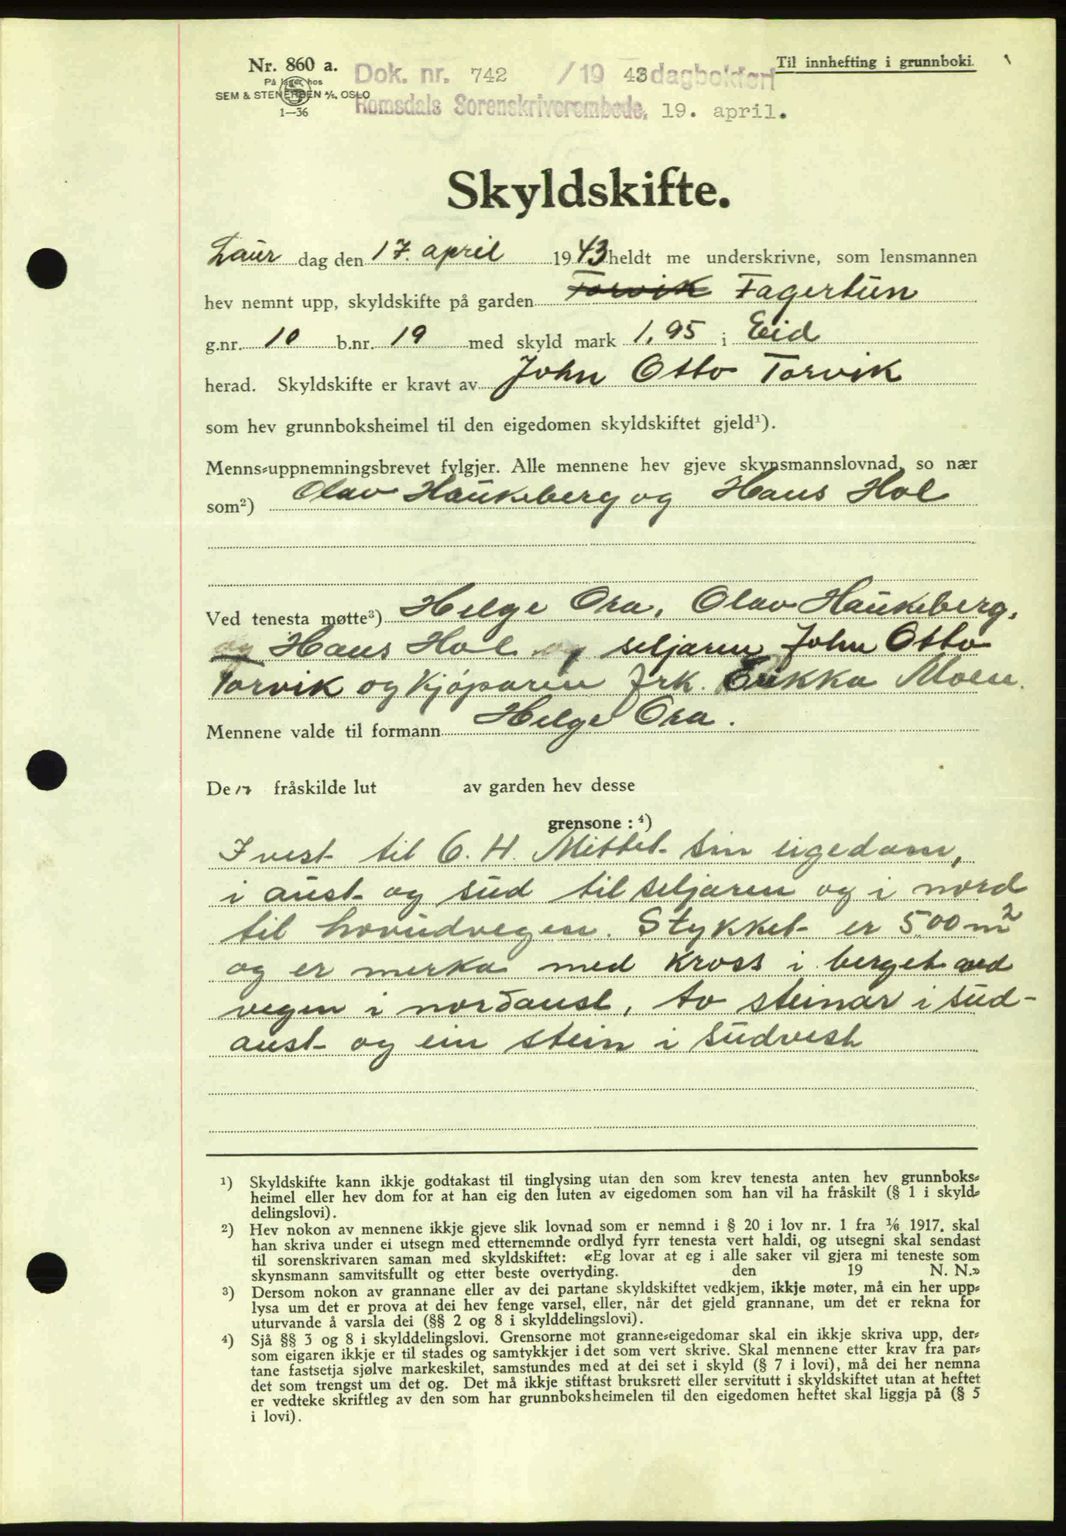 Nr. 860 a.
På lager hos
SEM & STENERSEN A/S, OSLO
1—36
Dok. nr. 742 / 19 43 dagbokført
Romsdals Sorenskriverembede, 19. april.
Til innhefting i grunnboki.
Skyldskifte.
Laur dag den 17. april 1943 heldt me underskrivne, som lensmannen
hev nemnt upp, skyldskifte på garden Torvik Fagertun
g.nr. 10 b.nr. 19 med skyld mark 1,95 i Eid
herad. Skyldskifte er kravt av John Otto Torvik
som hev grunnboksheimel til den eigedomen skyldskiftet gjeld¹).
Menns-uppnemningsbrevet fylgjer. Alle mennene hev gjeve skynsmannslovnad, so nær
som²) Olav Haukeberg og Hans Hol
Ved tenesta møtte³) Helge Ora, Olav Haukeberg,
og Hans Hol og seljaren John Otto
Torvik og kjøparen frk. Erikka Moen.
Mennene valde til formann Helge Ora.
De 17 fråskilde lut av garden hev desse
grensone : ⁴)
I vest til O. H. Mittet sin eigedom,
i aust og sud til seljaren og i nord
til hovudvegen. Stykket er 500 m²
og er merka med kross i berget ved
vegen i nordaust, to steinar i sud-
aust og ein stein i sudvest
¹) Skyldskifte kann ikkje godtakast til tinglysing utan den som krev tenesta anten hev grunnboks-
heimel eller hev dom for at han eig den luten av eigedomen som han vil ha fråskilt (§ 1 i skyld-
delingslovi).
²) Hev nokon av mennene ikkje gjeve slik lovnad som er nemnd i § 20 i lov nr. 1 fra 1/6 1917, skal
han skriva under ei utsegn med etternemnde ordlyd fyrr tenesta vert haldi, og utsegni skal sendast
til sorenskrivaren saman med skyldskiftet: «Eg lovar at eg i alle saker vil gjera mi teneste som
skynsmann samvitsfullt og etter beste overtyding. den 19 N. N.»
³) Dersom nokon av grannane eller av dei partane skyldskiftet vedkjem, ikkje møter, må ein her upp-
lysa um det er prova at dei hev fenge varsel, eller, når det gjeld grannane, um det er rekna for
uturvande å varsla dei (§§ 2 og 8 i skylddelingslovi).
⁴) Sjå §§ 3 og 8 i skylddelingslovi. Grensorne mot granne-eigedomar skal ein ikkje skriva upp, der-
som eigaren ikkje er til stades og samtykkjer i det som vert skrive. Skal mennene etter krav fra par-
tane fastsetja sjølve markeskilet, samstundes med at dei set i skyld (§ 7 i lovi), må dei her nemna
det som trengst um det og. Det må ikkje stiftast bruksrett eller servitutt i skyldskiftet utan at heftet
er vedteke skriftleg av den som har grunnboksheimelen til den eigedomen heftet skal liggja på (§ 5
i lovi).